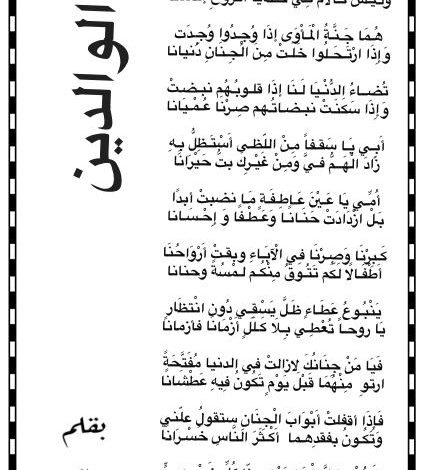 الوالدين
هُمَا جَنَّةُ الْمَأْوَى إِذَا وُجِدُوا وُجِدَت
وَإِذَا ارْتَحَلُوا خَلَتْ مِنَ الْجِنَانِ دُنيانا
تُضاءُ الدُّنْيَا لَنَا إِذَا قلوبُهُم نبضتْ
وَإِذَا سَكَنَتْ نبضاتُهم صِرْنَا عُمْيَانا
أبي يَا سَقفاً مِنْ اللظى أَسْتَظِلُّ بِهِ
زَادَ الْهَمُّ فيَّ وَمِنْ غَيْرِكَ بتُّ حَيْرَانَا
أُمِّي يَا عَيْنَ عَاطِفَةٍ مَا نضبتْ أبدًا
بَلْ ازْدَادَتْ حَنَانا وَعَطْفًا وَ إِحْسَانا
كَبِرْنَا وَصِرْنَا فِي الْآبَاءِ وبقتْ أَرْوَاحُنَا
أَطْفَالًا لَكُم تَتُوقُ مِنْكُم لَمْسةً وحنانا
يَنْبُوعُ عَطَاءٍ ظَلَّ يَسْقِي دُونَ انْتظَارٍ
يَا روحاً تُعْطِي بِلا كَلَلٍ أَزْمَانًا فأزمانا
فَيَا مَنْ جِنَانُكَ لازالتْ في الدنيا مُفَتَّحَةً
ارتوِ مِنْهُمَا قَبْلَ يَوْمٍ تَكُونُ فِيهِ عَطْشانا
فَإِذَا اقفلتْ أَبْوَابَ الْجِنَانِ ستقولُ علّني
وَتَكُونُ بفقدهما أَكْثَرَ النَّاسِ خُسْرَانا
بقلم